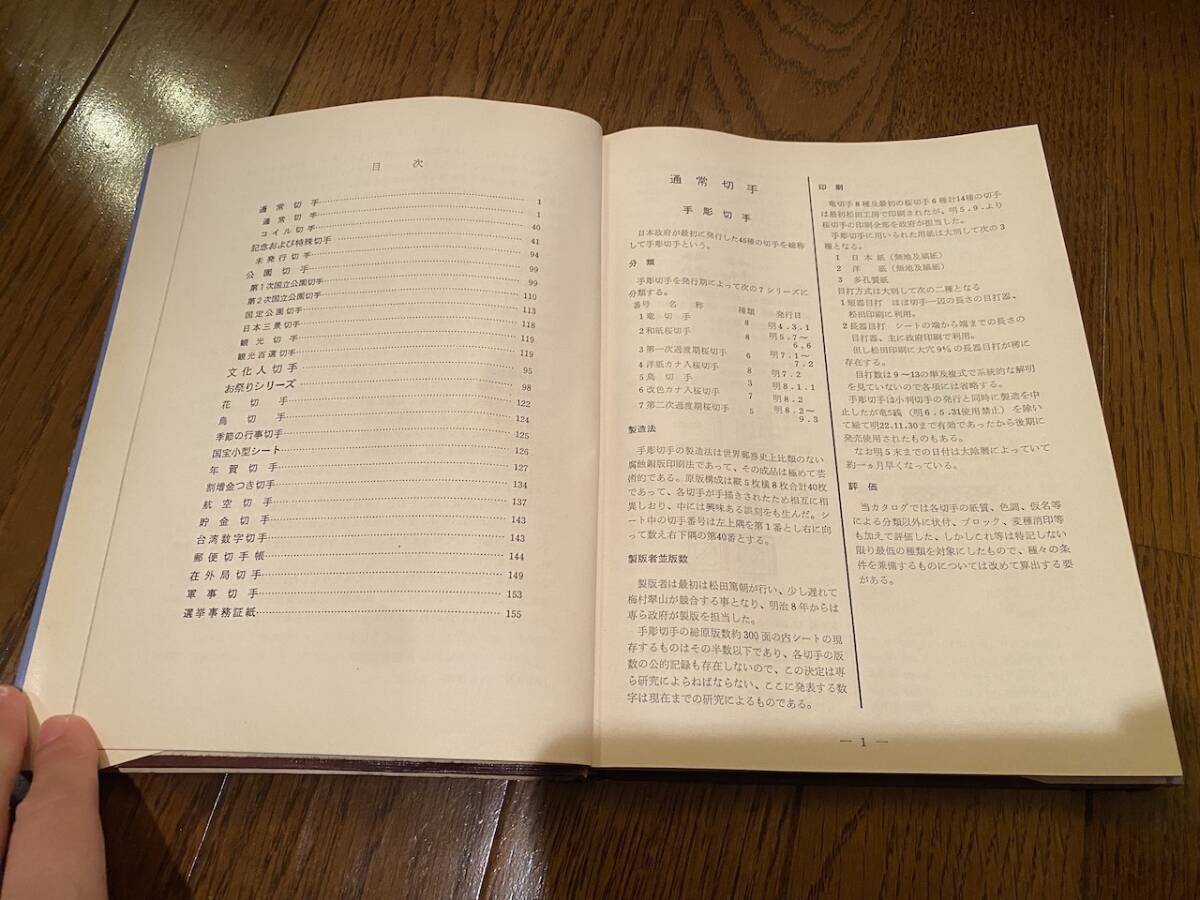 目次
通常切手 1
通常切手 1
コイル切手 40
記念および特殊切手 41
未発行切手 94
公園切手 99
第1次国立公園切手 99
第2次国立公園切手 110
国定公園切手 113
日本三景切手 118
観光切手 119
観光百選切手 119
文化人切手 95
お祭りシリーズ 98
花切手 122
鳥切手 124
季節の行事切手 125
国宝小型シート 126
年賀切手 127
割増金つき切手 134
航空切手 137
貯金切手 143
台湾数字切手 143
郵便切手帳 144
在外局切手 149
軍事切手 153
選挙事務証紙 155
通常切手
手彫切手
日本政府が最初に発行した45種の切手を総称
して手彫切手という。
分類
手彫切手を発行期によって次の7シリーズに
分類する。
番号 名称 種類 発行日
1 竜切手 8 明4.3.1
2 和紙桜切手 8 明5.7〜
6.6
3 第一次過渡期桜切手 6 明7.1〜
7.2
4 洋紙カナ入桜切手 8 明7.2
5 鳥切手 3 明8.1.1
6 改色カナ入桜切手 7 明8.2
7 第二次過渡期桜切手 5 明8.2〜
9.3
製造法
手彫切手の製造法は世界郵券史上比類のない
腐蝕銅版印刷法であって、その成品は極めて芸
術的である。原版構成は縦5枚横8枚合計40枚
であって、各切手が手描きされたため相互に相
異しおり、中には興味ある誤刻をも生んだ。シ
ート中の切手番号は左上隅を第1番とし右に向
って数え右下隅の第40番とする。
製版者並版数
製版者は最初は松田篤朝が行い、少し遅れて
梅村翠山が競合する事となり、明治8年からは
専ら政府が製版を担当した。
手彫切手の総原版数約300面の内シートの現
存するものはその半数以下であり、各切手の版
数の公的記録も存在しないので、この決定は専
ら研究によらねばならない、ここに発表する数
字は現在までの研究によるものである。
印刷
竜切手8種及最初の桜切手6種計14種の切手
は最初松田工房で印刷されたが、明5.9.より
桜切手の印刷全部を政府が担当した。
手彫切手に用いられた用紙は大別して次の3
種となる。
1 日本紙(無地及縞紙)
2 洋紙(無地及縞紙)
3 多孔質紙
目打方式は大別して次の二種となる
1 短器目打 ほぼ切手一辺の長さの目打器、
松田印刷に利用。
2 長器目打 シートの端から端までの長さの
目打器、主に政府印刷で利用。
但し松田印刷に大穴9½の長器目打が稀に
存在する。
目打数は9〜13の単及複式で系統的な解明
を見ていないので各項には省略する。
手彫切手は小判切手の発行と同時に製造を中
止したが竜5銭(明6.5.31使用禁止)を除い
て総て明22.11.30まで有効であったから後期に
発売使用されたものもある。
なお明5末までの日付は大陰暦によっていて
約一ヵ月早くなっている。
評価
当カタログでは各切手の紙質、色調、仮名等
による分類以外に状付、ブロック、変種消印等
も加えて評価した、しかしこれ等は特記しない
限り最低の種類を対象にしたもので、種々の条
件を兼備するものについては改めて算出する要
がある。
— 1 —